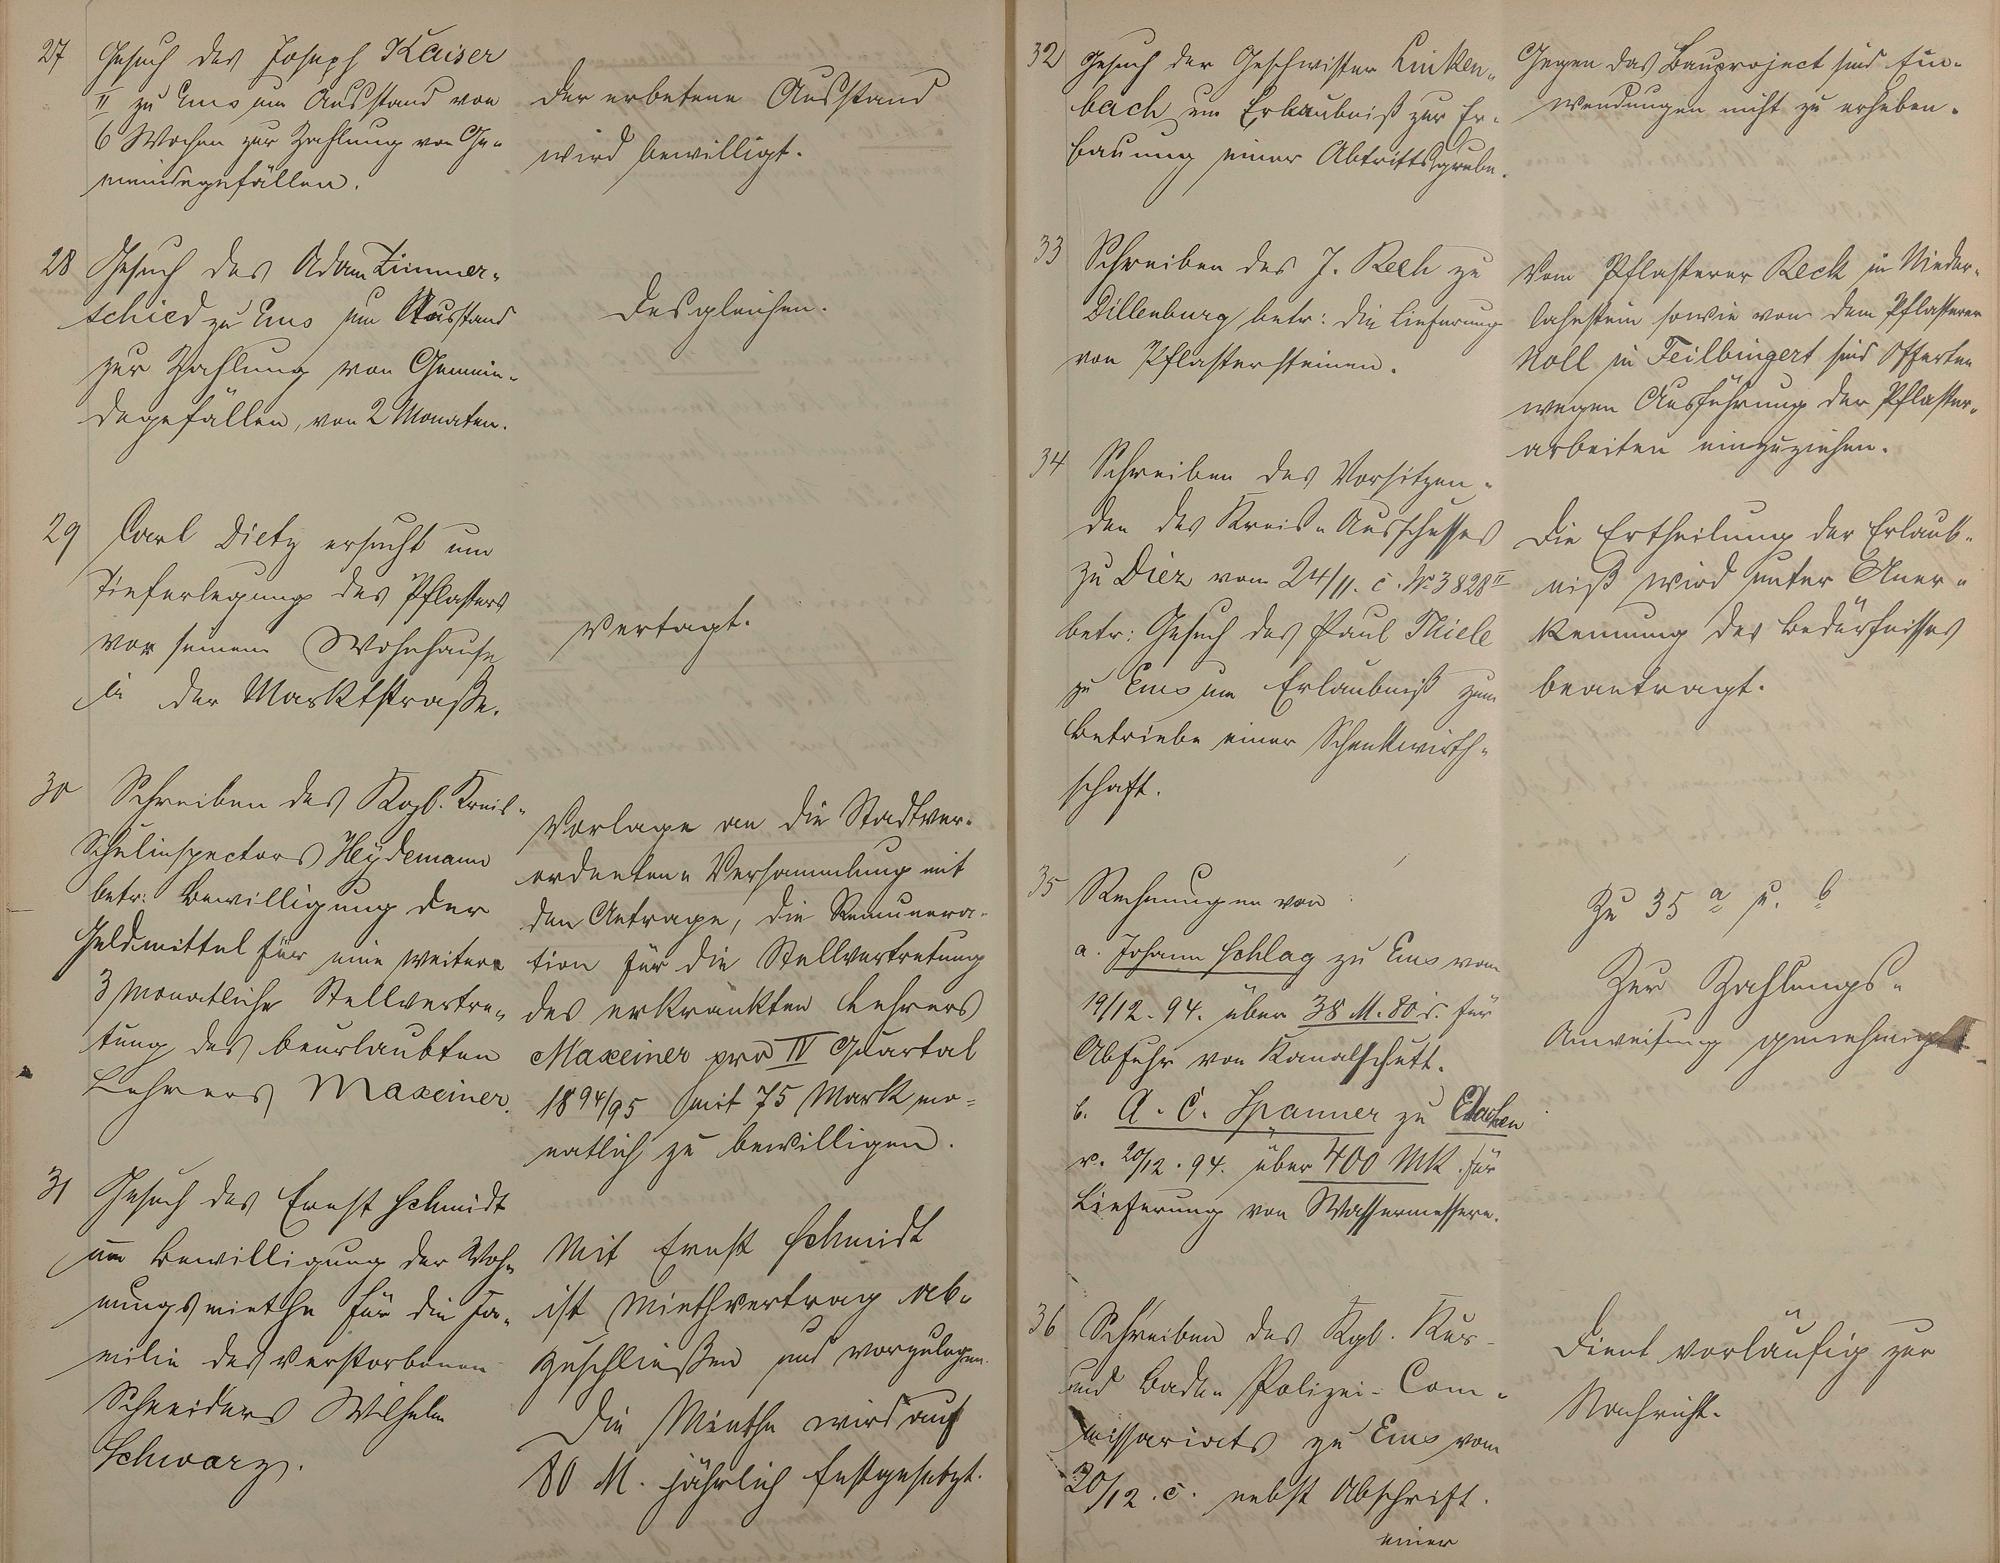 27 Gesuch des Joseph Kaiser
II zu Ems um Ausstand von
6 Wochen zur Zahlung von Ge-
meindegefällen.
Der erbetene Ausstand
wird bewilligt.
28 Gesuch des Adam Zimmer-
schied zu Ems um Ausstand
zur Zahlung von Gemein-
degefällen, von 2 Monaten.
Desgleichen.
29 Carl Dietz ersucht um
Tieferlegung des Pflasters
vor seinem Wohnhause
in der Marktstraße.
Vertagt.
30 Schreiben des Kgl. Kreis-
Schulinspectors Heydemann
betr: Bewilligung der
Geldmittel für eine weitere
3 monatliche Stellvertre-
tung des beurlaubten
Lehrers Maxeiner.
Vorlage an die Stadtver-
ordneten-Versammlung mit
dem Antrage, die Remunera-
tion für die Stellvertretung
des erkrankten Lehrers
Maxeiner pro IV Quartal
1894/95 mit 75 Mark mo-
natlich zu bewilligen.
31 Gesuch des Ernst Schmidt
um Bewilligung der Woh-
nungsmiethe für die Fa-
milie des verstorbenen
Schneiders Wilhelm
Schwarz.
Mit Ernst Schmidt
ist Miethvertrag ab-
zuschließen und vorzulegen.
Die Miethe wird auf
80 M. jährlich festgesetzt.
32 Gesuch der Geschwister Linken-
bach um Erlaubniß zur Er-
bauung einer Abtrittsgrube.
Gegen das Bauproject sind Ein-
wendungen nicht zu erheben.
33 Schreiben des J. Rech zu
Dillenburg betr: die Lieferung
von Pflastersteinen.
Vom Pflasterer Reck in Nieder-
lahnstein sowie von dem Pflasterer
Noll in Feilbingert sind Offerten
wegen Ausführung der Pflaster-
arbeiten einzuziehen.
34 Schreiben des Vorsitzen-
den des Kreis-Ausschusses
zu Diez vom 24/11. c. No 3828 II
betr: Gesuch des Paul Thiele
zu Ems um Erlaubniß zum
Betriebe einer Schenkwirth-
schaft.
Die Ertheilung der Erlaub-
niß wird unter Aner-
kennung des Bedürfnisses
beantragt.
35 Rechnungen von
a. Johann Schlag zu Ems vom
19/12. 94. über 38 M. 80 d. für
Abfuhr von Kanalschutt.
b. A. C. Spanner zu Aachen
v. 20/12. 94. über 400 Mk. für
Lieferung von Wassermessern.
Zu 35 a u. b
Zur Zahlungs-
Anweisung genehmigt
36 Schreiben des Kgl. Kur-
und Bade-Polizei-Com-
missariats zu Ems vom
20/12. c. nebst Abschrift
einer
Dient vorläufig zur
Nachricht.